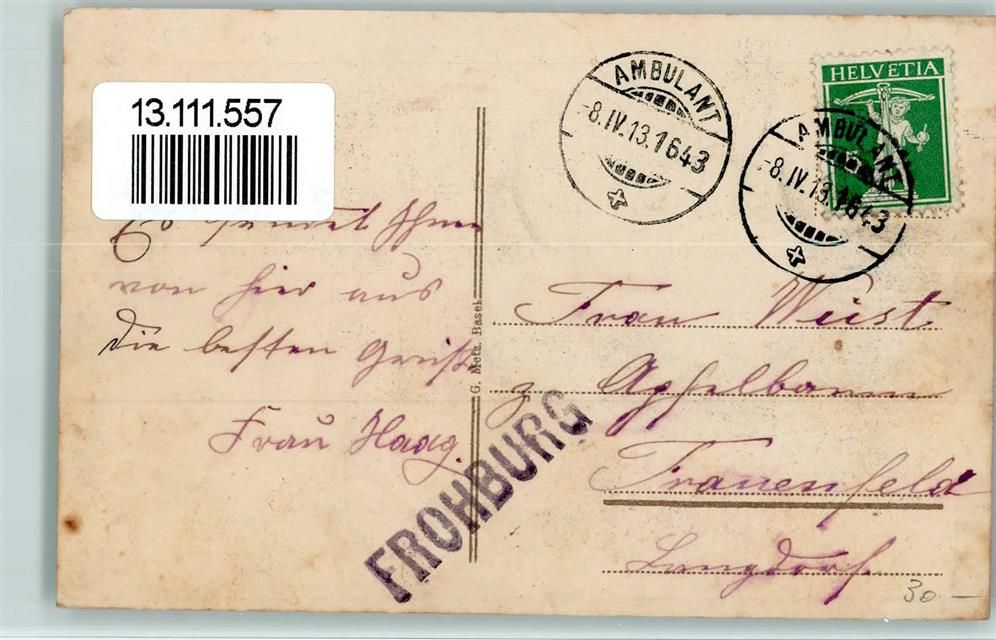 13.111.557
AMBULANT
-8.IV.13.1643
HELVETIA
AMBULANT
-8.IV.13.1643
Es sendet Ihnen
von hier aus
die besten Grüße
Frau Haag.
G. Metz, Basel
FROHBURG
Frau Wüst
z Apfelbaum
Frauenfeld
Langdorf.
30.-